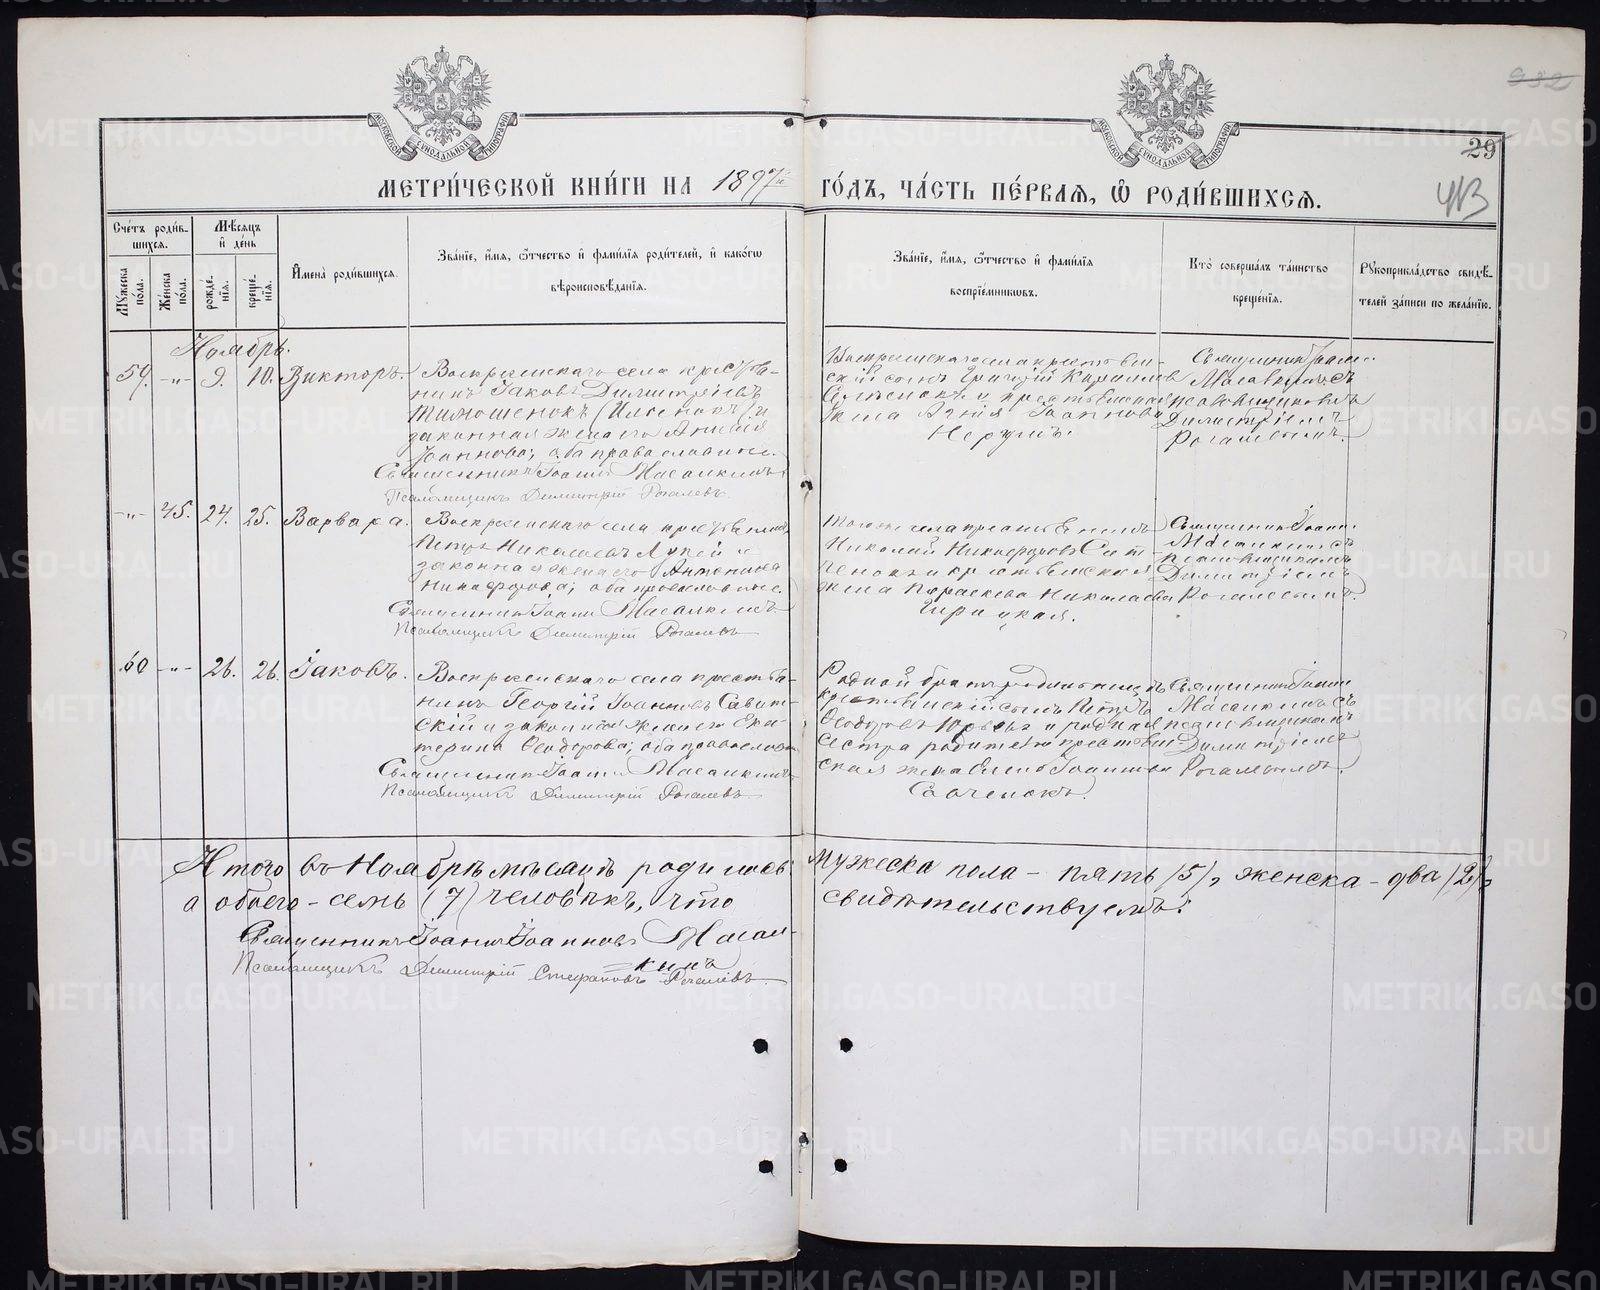 932
29
413
МОСКОВСКОЙ СѴНОДАЛЬНОЙ ТИПОГРАФІИ
МОСКОВСКОЙ СѴНОДАЛЬНОЙ ТИПОГРАФІИ
МЕТРИ́ЧЕСКОЙ КНИ́ГИ НА 1897й ГО́ДЪ, ЧА́СТЬ ПЕ́РВАЯ, Ѡ РОДИ́ВШИХСЯ.
Сче́тъ роди́в-
шихся.
Мѣсяцъ
и де́нь
Мꙋ́жеска
по́ла.
Же́нска
по́ла.
рожде́-
нїя.
креще́-
нїя.
Имена̀ роди́вшихся.
Зва́нїе, и́мя, ѻ́тчество и фами́лїя роди́телей, и како́гѡ
вѣроисповѣ́данїя.
Зва́нїе, и́мя, ѻ́тчество и фами́лїя
воспрїе́мникѡвъ.
Кто̀ соверша́лъ та́инство
креще́нїя.
Рꙋкоприкла́дство свидѣ́-
телей за́писи по жела́нїю.
Ноябрь.
59. -"- 9. 10. Викторъ.
Воскресенскаго села кресть-
нинъ Іаковъ Димитріевъ
Тимошенокъ и
законная жена его
Іоаннова; оба православные.
Священникъ Іоаннъ Масалкинъ
Псаломщикъ Димитрій Рогалевъ
Григорій Кириллов
жена Агнія Іоаннова
Священник Іоанн
Масалкинъ съ
псаломщикомъ
Димитріемъ
Рогалевымъ.
-"- 45. 24. 25. Варвара.
Воскресенскаго села крестьянинъ
Петръ Николаевъ Лупей и
законная жена его
Никифорова; оба православные.
Священник Іоанн Масалкинъ
Псаломщикъ Димитрій Рогалевъ
Тогоже села крестьянинъ
Николай Никифоровъ Сит-
ченокъ и крестьянская
жена Параскева Николаева
Священник Іоанн
Масалкинъ съ
псаломщикомъ
Димитріемъ
Рогалевымъ.
60 -"- 26. 26. Іаковъ.
Воскресенскаго села крестья-
нинъ Георгій Іоанновъ Савит-
скій и законная жена его Ека-
терина Ѳеодорова; оба православн
Священник Іоанн Масалкинъ
Псаломщикъ Димитрій Рогалевъ
Родной братъ родильницы
крестьянскій сынъ Петръ
Ѳеодоровъ и родная
сестра родителя крестьян-
ская жена Елена Іоаннова
Савченокъ.
Священник Іоанн
Масалкинъ съ
псаломщикомъ
Димитріемъ
Рогалевымъ.
Итого въ Ноябрѣ мѣсяцѣ родилось: мужеска пола – пять /5/, женска – два /2/,
а обоего – семь (7) человѣкъ, что свидѣтельствуемъ:
Священникъ Іоаннъ Іоанновъ Масал-
кинъ
Псаломщикъ Димитрій Стефановъ Рогалевъ